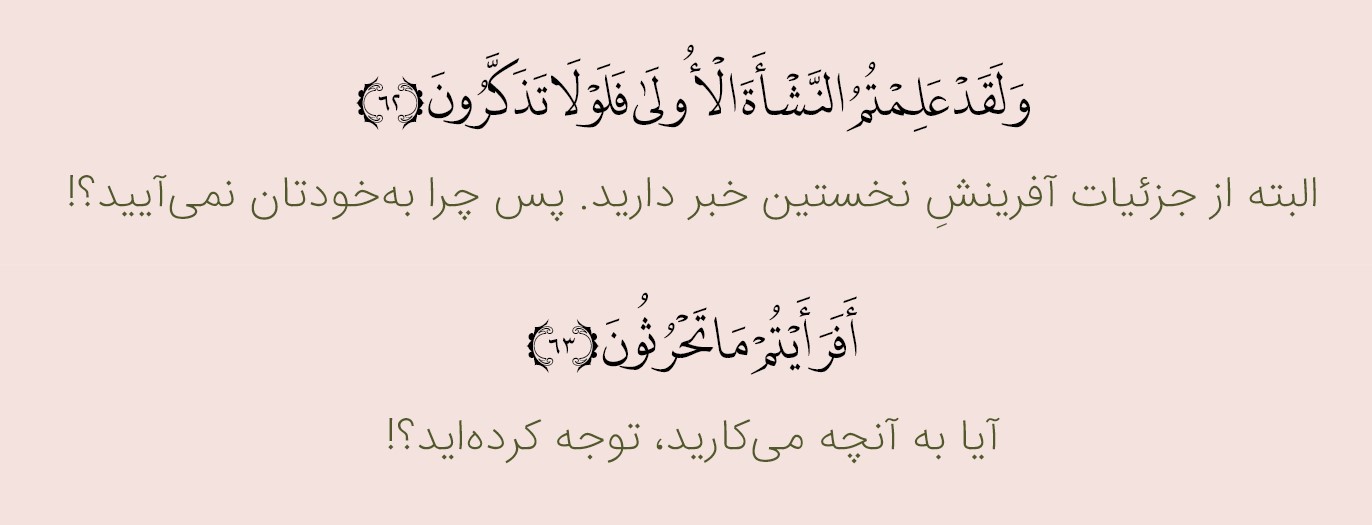 وَلَقَدْ عَلِمْتُمُ النَّشْأَةَ الْأُولَىٰ فَلَوْلَا تَذَكَّرُونَ ﴿٦٢﴾
البته از جزئیات آفرینشِ نخستین خبر دارید. پس چرا به‌خودتان نمی‌آیید؟!
أَفَرَأَيْتُمْ مَا تَحْرُثُونَ ﴿٦٣﴾
آیا به آنچه می‌کارید، توجه کرده‌اید؟!